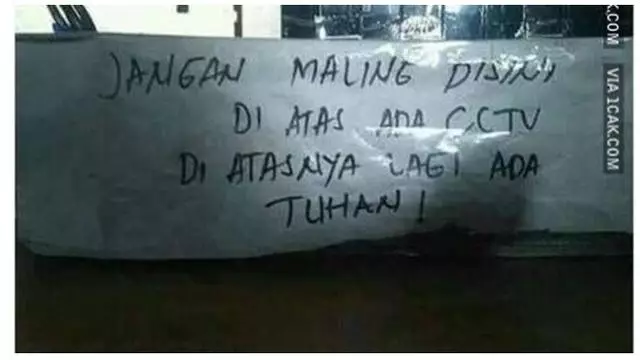 JANGAN MALING DISINI
DI ATAS ADA CCTV
DI ATASNYA LAGI ADA
TUHAN!
K.COM
VIA 1CAK.COM